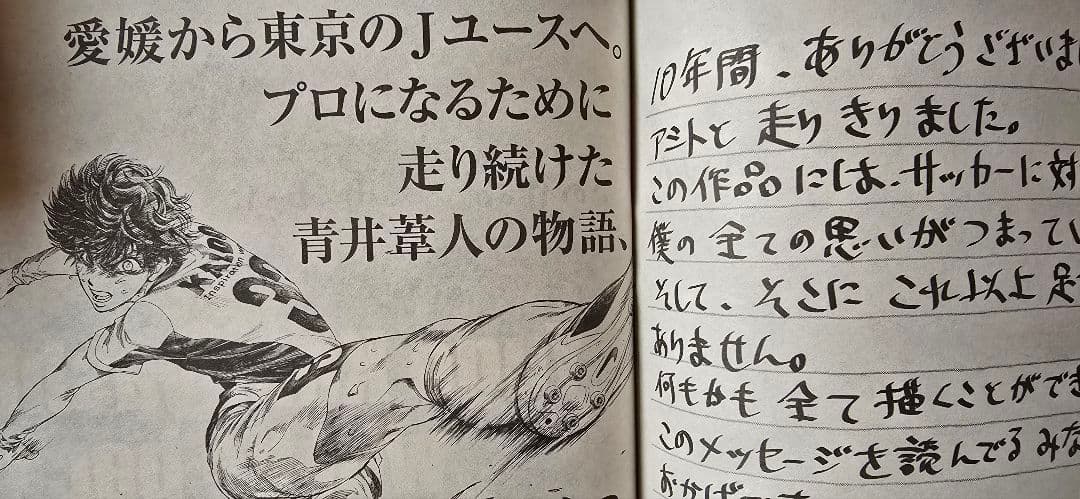 愛媛から東京のJユースへ。
プロになるために
走り続けた
青井葦人の物語、
Inspiration
10年間、ありがとうございまし
アシトと走りきりました。
この作品には、サッカーに対
僕の全ての思いがつまってい
そして、そこにこれ以上足
ありません。
何もかも全て描くことができ
このメッセージを読んでるみな
おかげ